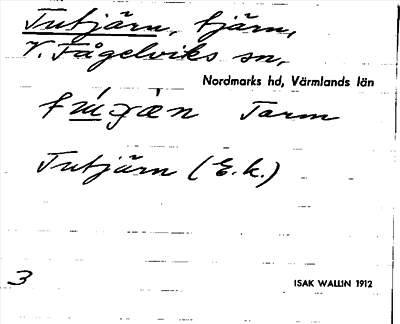 Tutjärn, tjärn,
V. Fågelviks sn,
Nordmarks hd, Värmlands län
Tarm
Tutjärn (E.k.)
3
ISAK WALLIN 1912